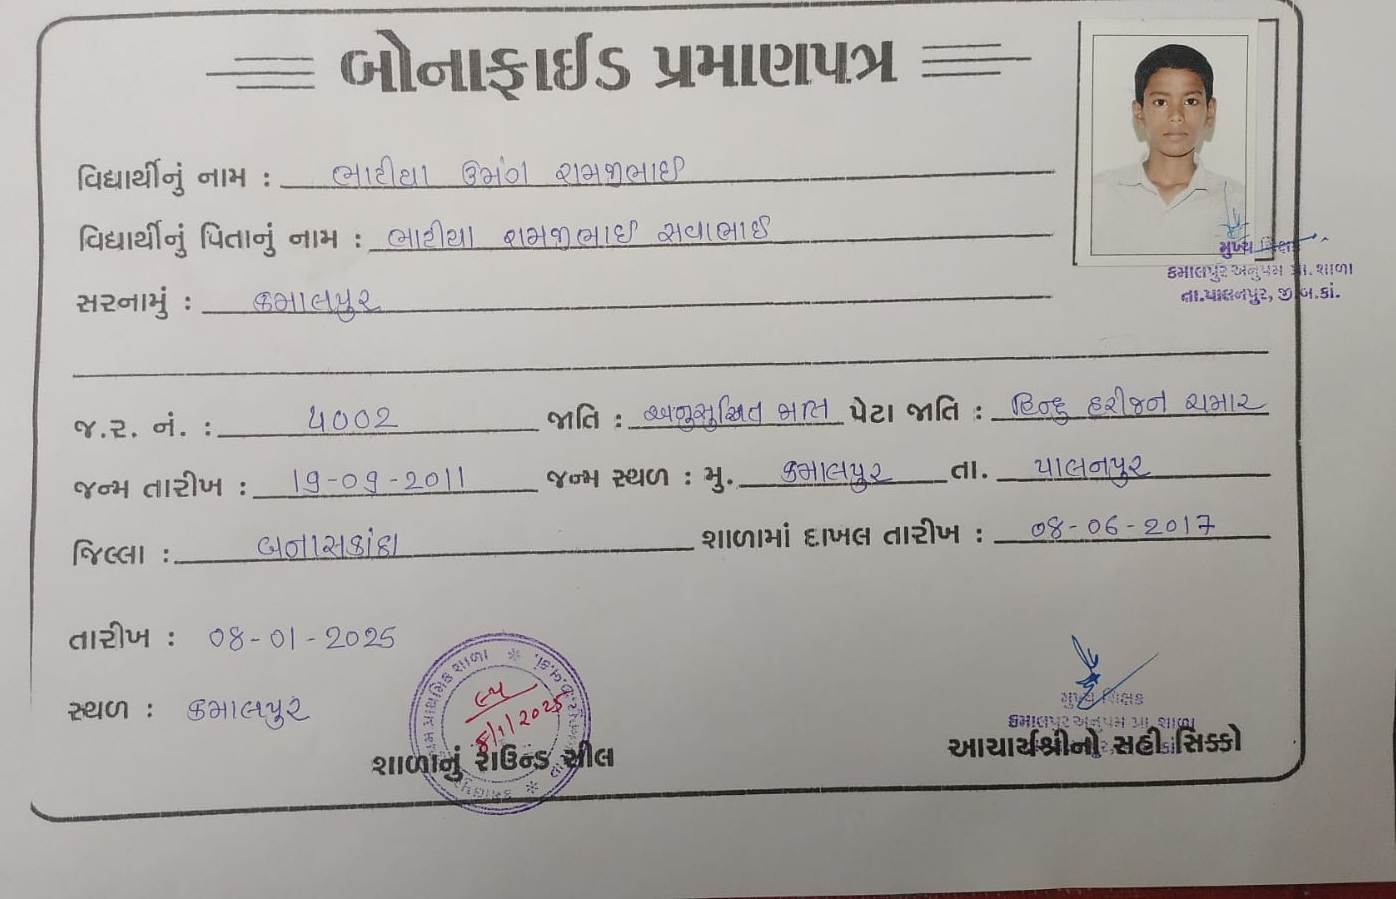 બોનાફાઈડ પ્રમાણપત્ર
વિદ્યાર્થીનું નામ : ભાટીયા ઉમંગ રામજીભાઈ
વિદ્યાર્થીનું પિતાનું નામ : ભાટીયા રામજીભાઈ સવાભાઈ
મુખ્ય શિક્ષક
કમાલપુર અનુપમ પ્રા. શાળા
તા.પાલનપુર, જી.બ.કાં.
સરનામું : કમાલપુર
જ.ર. નં. : 4002 જાતિ : અનુસુચિત જાતિ પેટા જાતિ : હિન્દુ હરીજન ચમાર
જન્મ તારીખ : 19-09-2011 જન્મ સ્થળ : મુ. કમાલપુર તા. પાલનપુર
જિલ્લા : બનાસકાંઠા શાળામાં દાખલ તારીખ : 08-06-2017
તારીખ : 08-01-2025
સ્થળ : કમાલપુર
પ્રાથમિક શાળા
8/1/2025
શાળાનું રાઉન્ડ સીલ
મુખ્ય શિક્ષક
કમાલપુર અનુપમ પ્રા. શાળા
આચાર્યશ્રીનો સહી સિક્કો